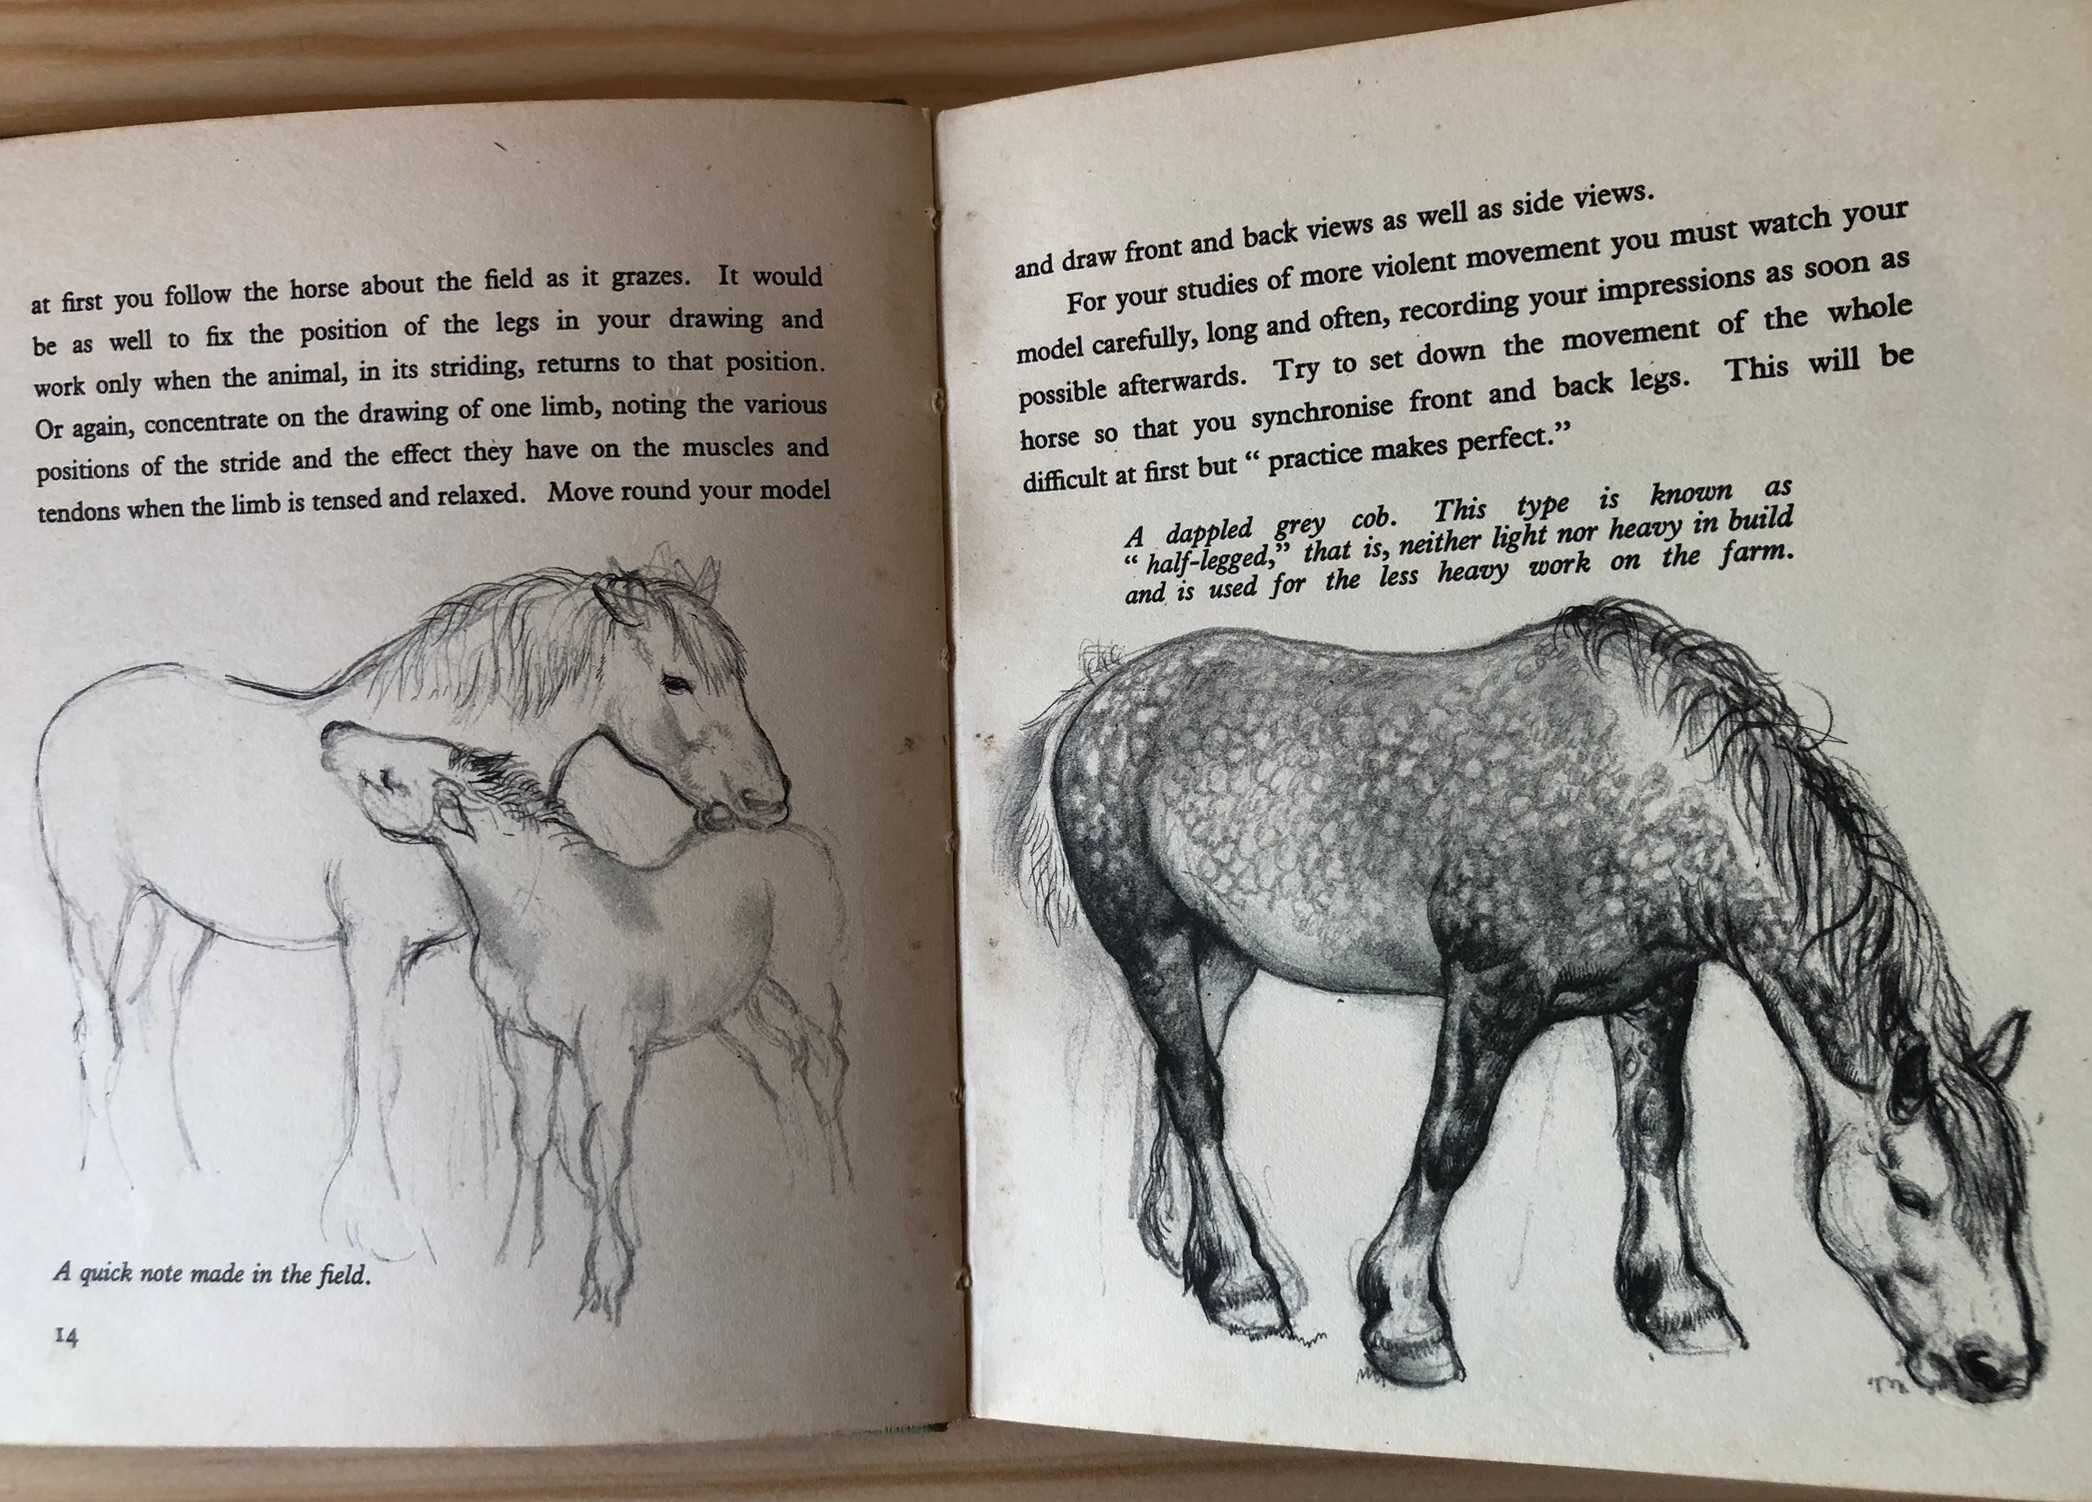 at first you follow the horse about the field as it grazes. It would
be as well to fix the position of the legs in your drawing and
work only when the animal, in its striding, returns to that position.
Or again, concentrate on the drawing of one limb, noting the various
positions of the stride and the effect they have on the muscles and
tendons when the limb is tensed and relaxed. Move round your model
A quick note made in the field.
14
and draw front and back views as well as side views.
For your studies of more violent movement you must watch your
model carefully, long and often, recording your impressions as soon as
possible afterwards. Try to set down the movement of the whole
horse so that you synchronise front and back legs. This will be
difficult at first but “ practice makes perfect.”
A dappled grey cob. This type is known as
“ half-legged,” that is, neither light nor heavy in build
and is used for the less heavy work on the farm.